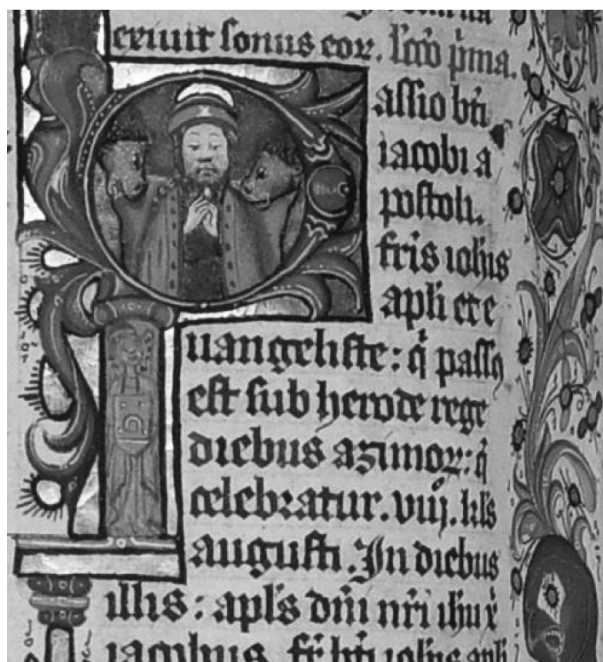 ceriut sonus eor. lcco p̄ma.
Passio bt̄i
iacobi a
postoli.
fr̄is ioh̄is
apl̄i et e
uangeliste: q̄ passꝯ
est sub herode rege
diebus azimoꝝ: q̄
celebratur. viij. kl̄s
augusti. In diebus
illis: apl̄s dn̄i nr̄i ihu x̄
iacobus, fr̄ bt̄i ioh̄is apl̄i